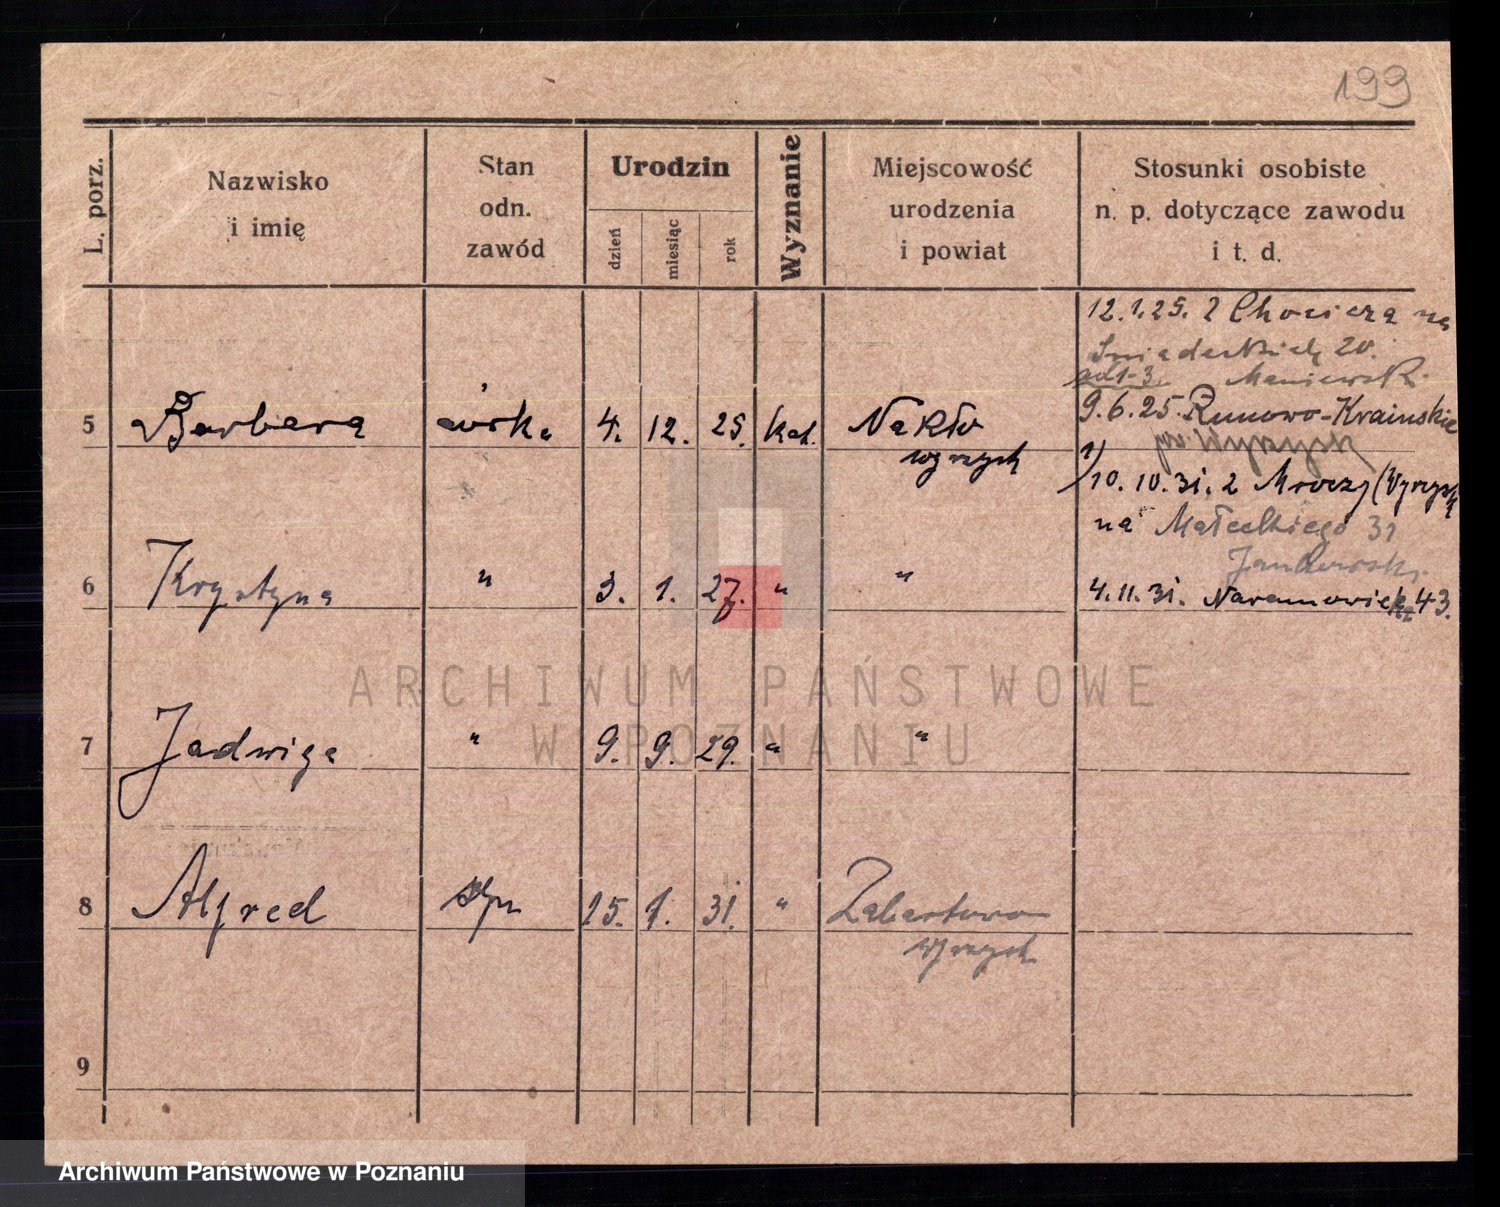 199
L. porz.
Nazwisko
i imię
Stan
odn.
zawód
Urodzin
dzień
miesiąc
rok
Wyznanie
Miejscowość
urodzenia
i powiat
Stosunki osobiste
n. p. dotyczące zawodu
i t. d.
5 Barbara córka 4. 12. 25. kat. Nakło
wyrzysk
6 Krystyna " 3. 1. 27. " "
7 Jadwiga " 9. 9. 29. " "
8 Alfred syn 25. 1. 31. " Zabartowo
wyrzysk
9
12.1.25. z Chocicza na
Śniadeckich 20.
ad 1-3.
9.6.25. Runowo-Krainskie
pow. Wyrzysk
1)
10.10.31. z Mroczy (Wyrzysk
na Małeckiego 31
Jankowski
4.11.31. Naramowicka 43.
ARCHIWUM PAŃSTWOWE
W POZNANIU
Archiwum Państwowe w Poznaniu